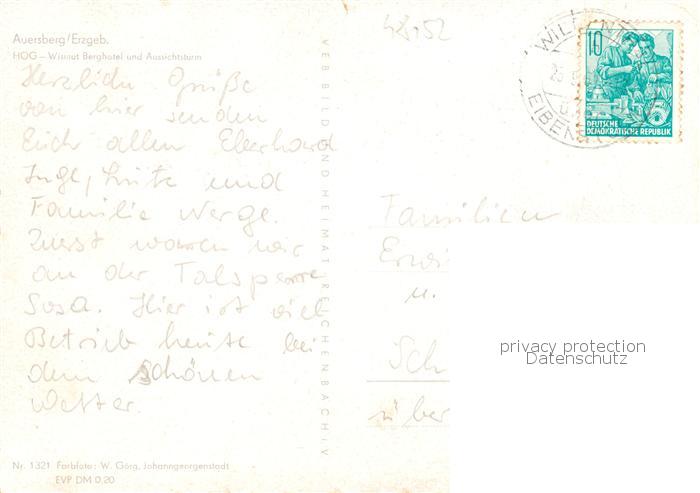 Auersberg/Erzgeb.
HOG – Wismut Berghotel und Aussichtsturm
Herzliche Grüße
von hier senden
Euch allen Eberhard
Inge, Lutz und
Familie Werge.
Zuerst waren wir
an der Talsperre
Sosa. Hier ist viel
Betrieb heute bei
dem schönen
Wetter.
Nr. 1321 Farbfoto: W. Görg, Johanngeorgenstadt
EVP DM 0,20
VEB BILD UND HEIMAT REICHENBACH i. V.
48,52
10
DEUTSCHE
DEMOKRATISCHE REPUBLIK
Familien
u.
Sch
über
privacy protection
Datenschutz